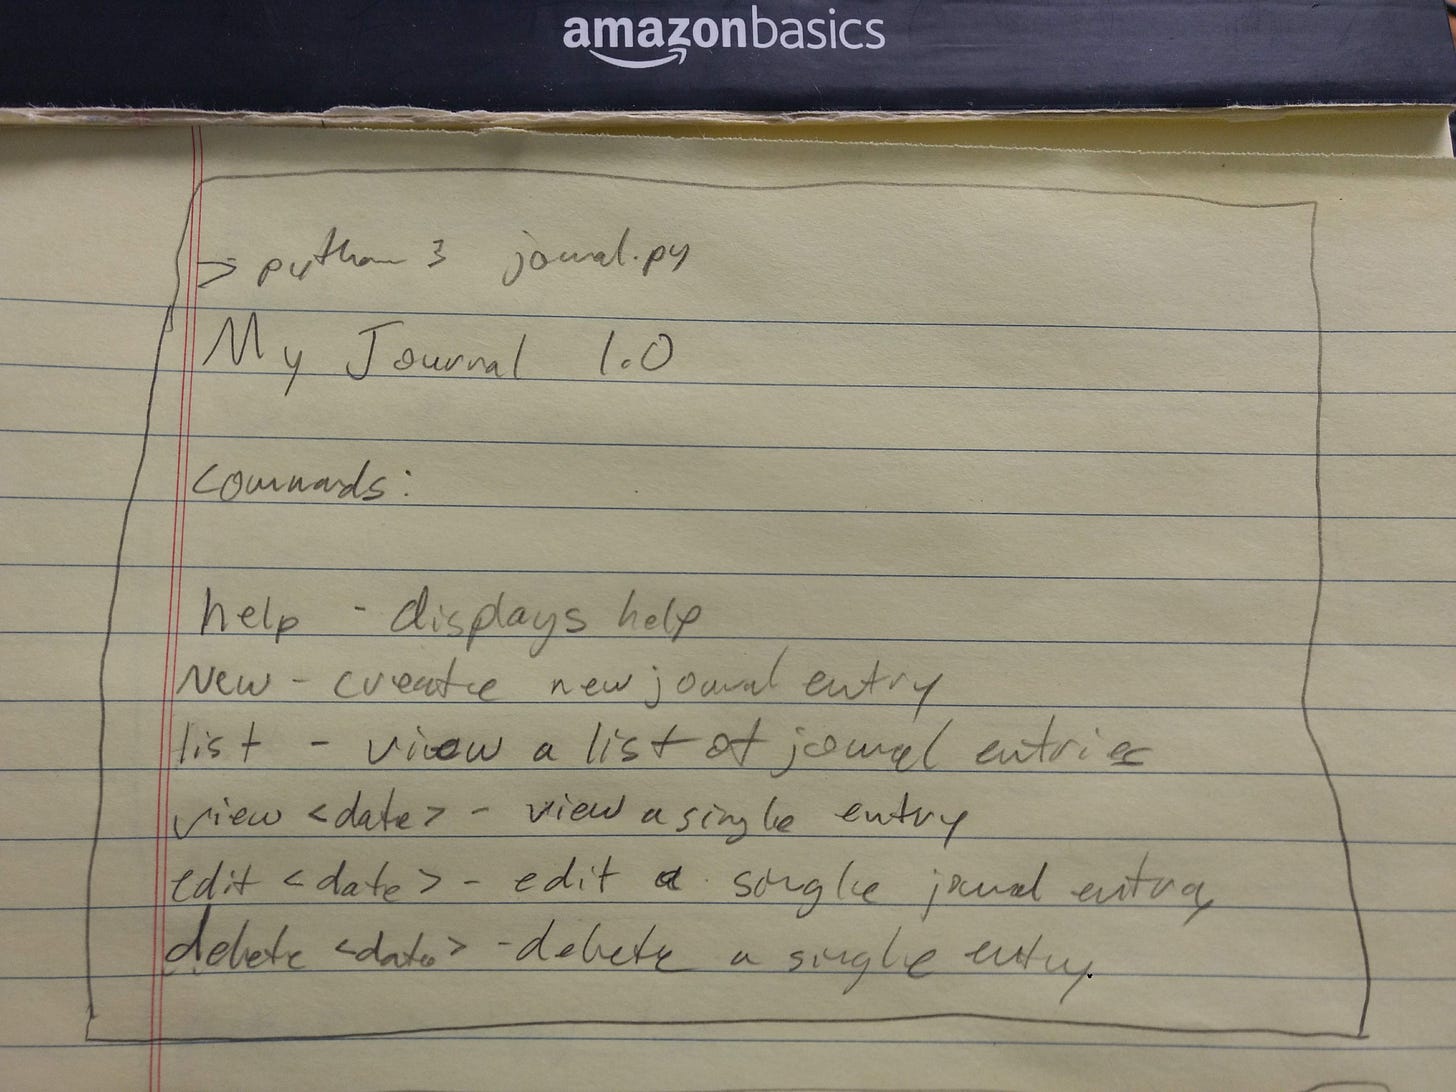 amazonbasics
> python3 journal.py
My Journal 1.0
commands:
help - displays help
New - create new journal entry
list - view a list of journal entries
view <date> - view a single entry
edit <date> - edit a single journal entry
delete <date> - delete a single entry.